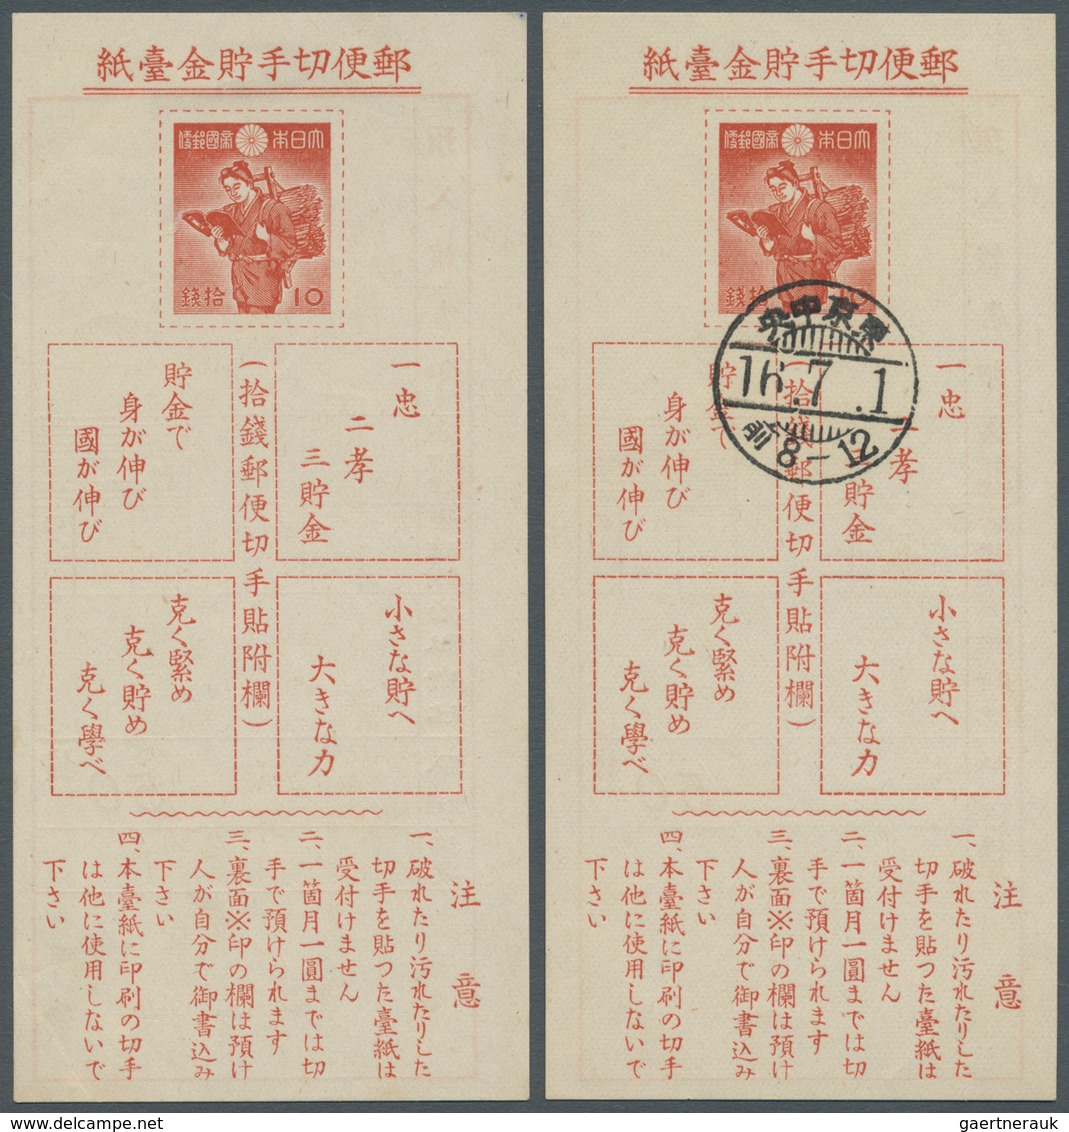 紙臺金貯手切便郵
便郵國帝 本日大
錢拾 10
一忠
二孝
三貯金
(拾錢郵便切手貼附欄)
貯金で
身が伸び
國が伸び
小さな貯へ
大きな力
克く緊め
克く貯め
克く學べ
注意
一、破れたり汚れたりした
切手を貼つた臺紙は
受付けません
二、一箇月一圓までは切
手で預けられます
三、裏面※印の欄は預け
人が自分で御書込み
下さい
四、本臺紙に印刷の切手
は他に使用しないで
下さい
紙臺金貯手切便郵
便郵國帝 本日大
錢拾
央中京東
16.7.1
前8-12
一忠
二孝
三貯金
(拾錢郵便切手貼附欄)
貯金で
身が伸び
國が伸び
小さな貯へ
大きな力
克く緊め
克く貯め
克く學べ
注意
一、破れたり汚れたりした
切手を貼つた臺紙は
受付けません
二、一箇月一圓までは切
手で預けられます
三、裏面※印の欄は預け
人が自分で御書込み
下さい
四、本臺紙に印刷の切手
は他に使用しないで
下さい
gaertnerauk